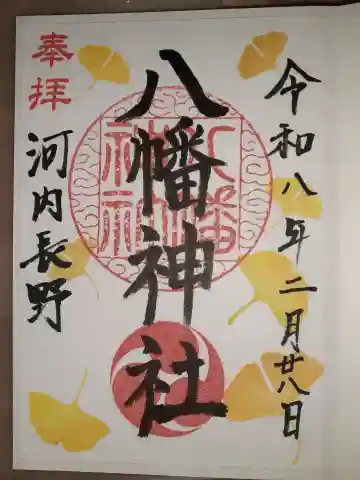 令和八年二月廿八日
八幡神社
奉拝
河内長野
八幡神社